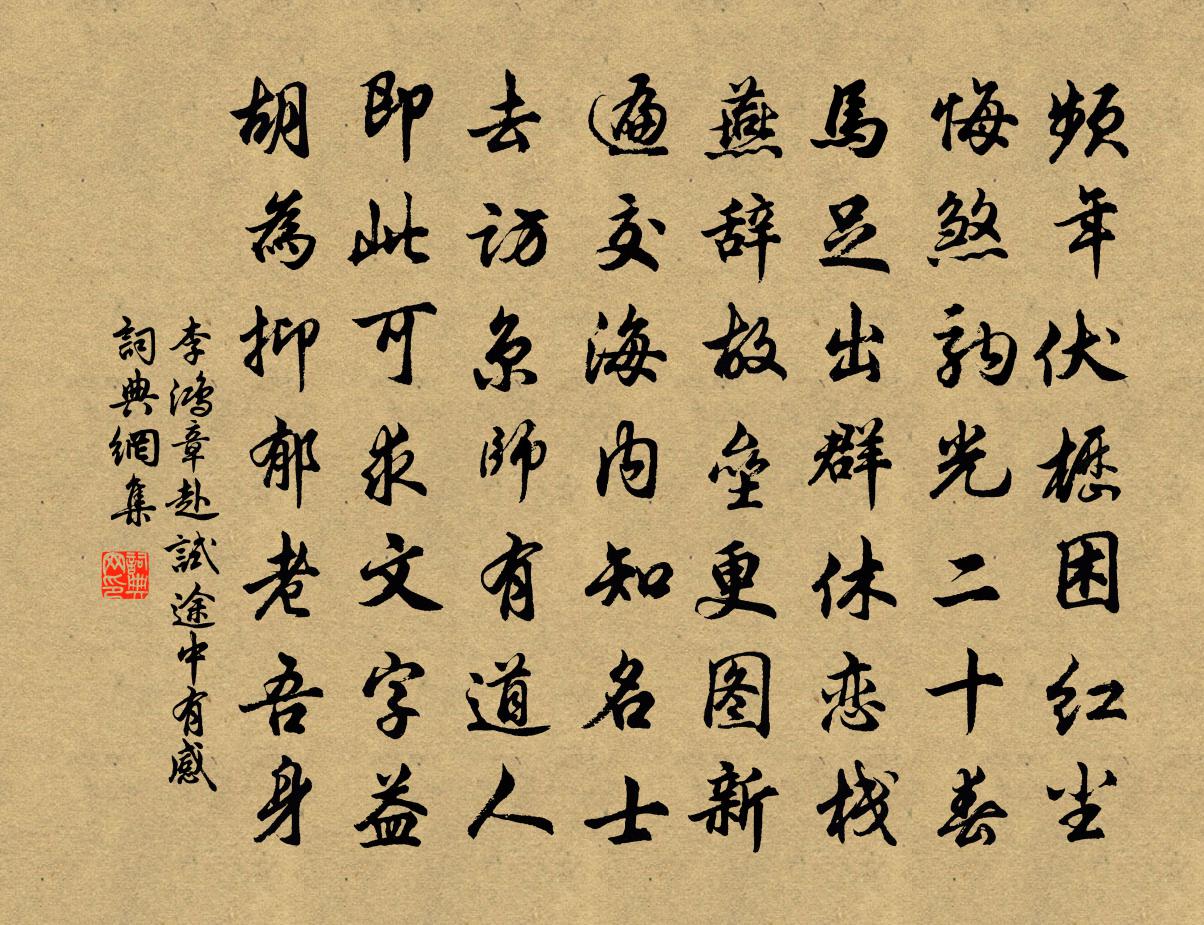 频年伏櫪困红尘
悔煞駒光二十春
馬足出群休恋栈
燕辞故垒更图新
遍交海内知名士
去訪京師有道人
即此可求文字益
胡為抑郁老吾身
李鴻章赴試途中有感
詞典網集
詞典网印